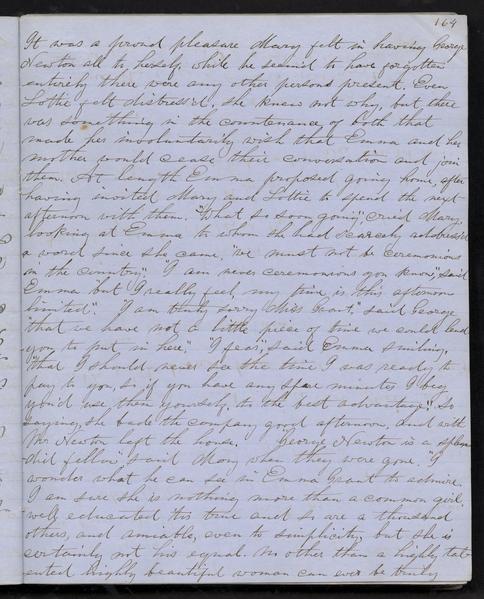 164
It was a proud pleasure Mary felt in having George
Newton all to herself, while he seemed to have forgotten
entirely there were any other persons present. Even
Lottie felt distressed, she knew not why, but there
was something in the countenance of both that
made her involuntarily wish that Emma and her
mother would cease their conversation and join
them. At length Emma proposed going home, after
having invited Mary and Lottie to spend the next
afternoon with them. "What so soon going" cried Mary,
looking at Emma to whom she had scarcely addressed
a word since she came, "we must not be ceremonious
in the country". "I am never ceremonious you know," said
Emma but "I really feel, my time is this afternoon
limited". "I am truly sorry Miss Grant," said George
"that we have not a little piece of time we could lend
you to put in here". "I fear," said Emma smiling,
"that I should never see the time I was ready to
pay to you, so if you have any spare minutes I beg
you'd use them yourself, to the best advantage". So
saying, she bade the company good afternoon, and with
Mr Newton left the house. "George Newton is a splen
did fellow" said Mary when they were gone. "I
wonder what he can see in Emma Grant to admire.
I am sure she is nothing more than a common girl.
well educated 'tis true and so are a thousand
others, and amiable, even to simplicity but she is
certainly not his equal. No other than a highly tal
ented highly beautiful woman can ever be truly